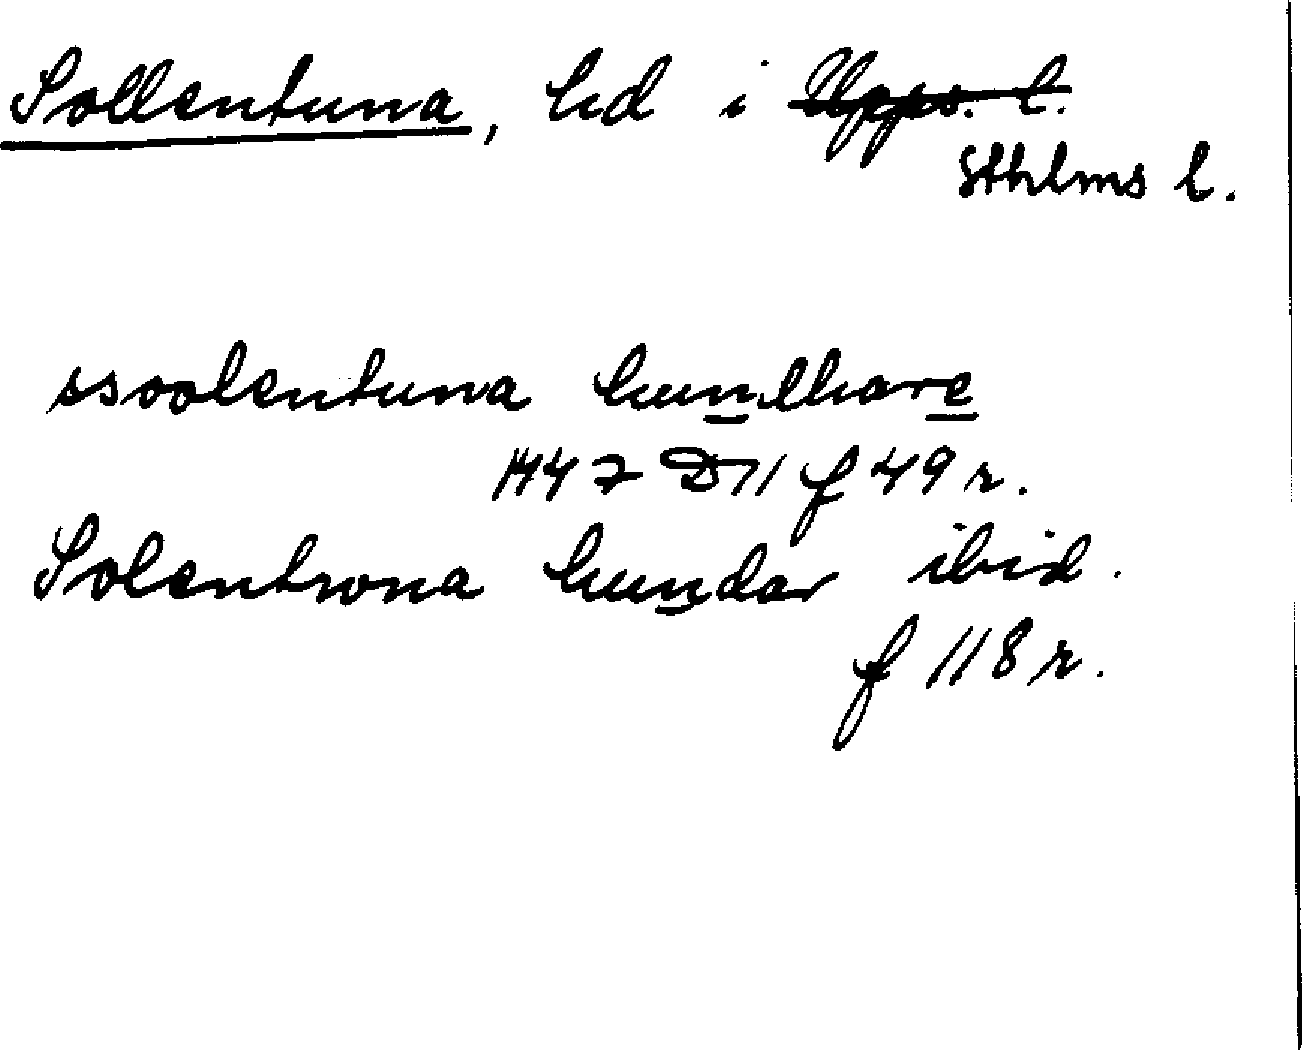 Sollentuna, hd i Upps. l.
Sthlms l.
ssoolentuna hundhare
1447 D11 f 49 r.
Solentwna hundar ibid.
f 118 r.